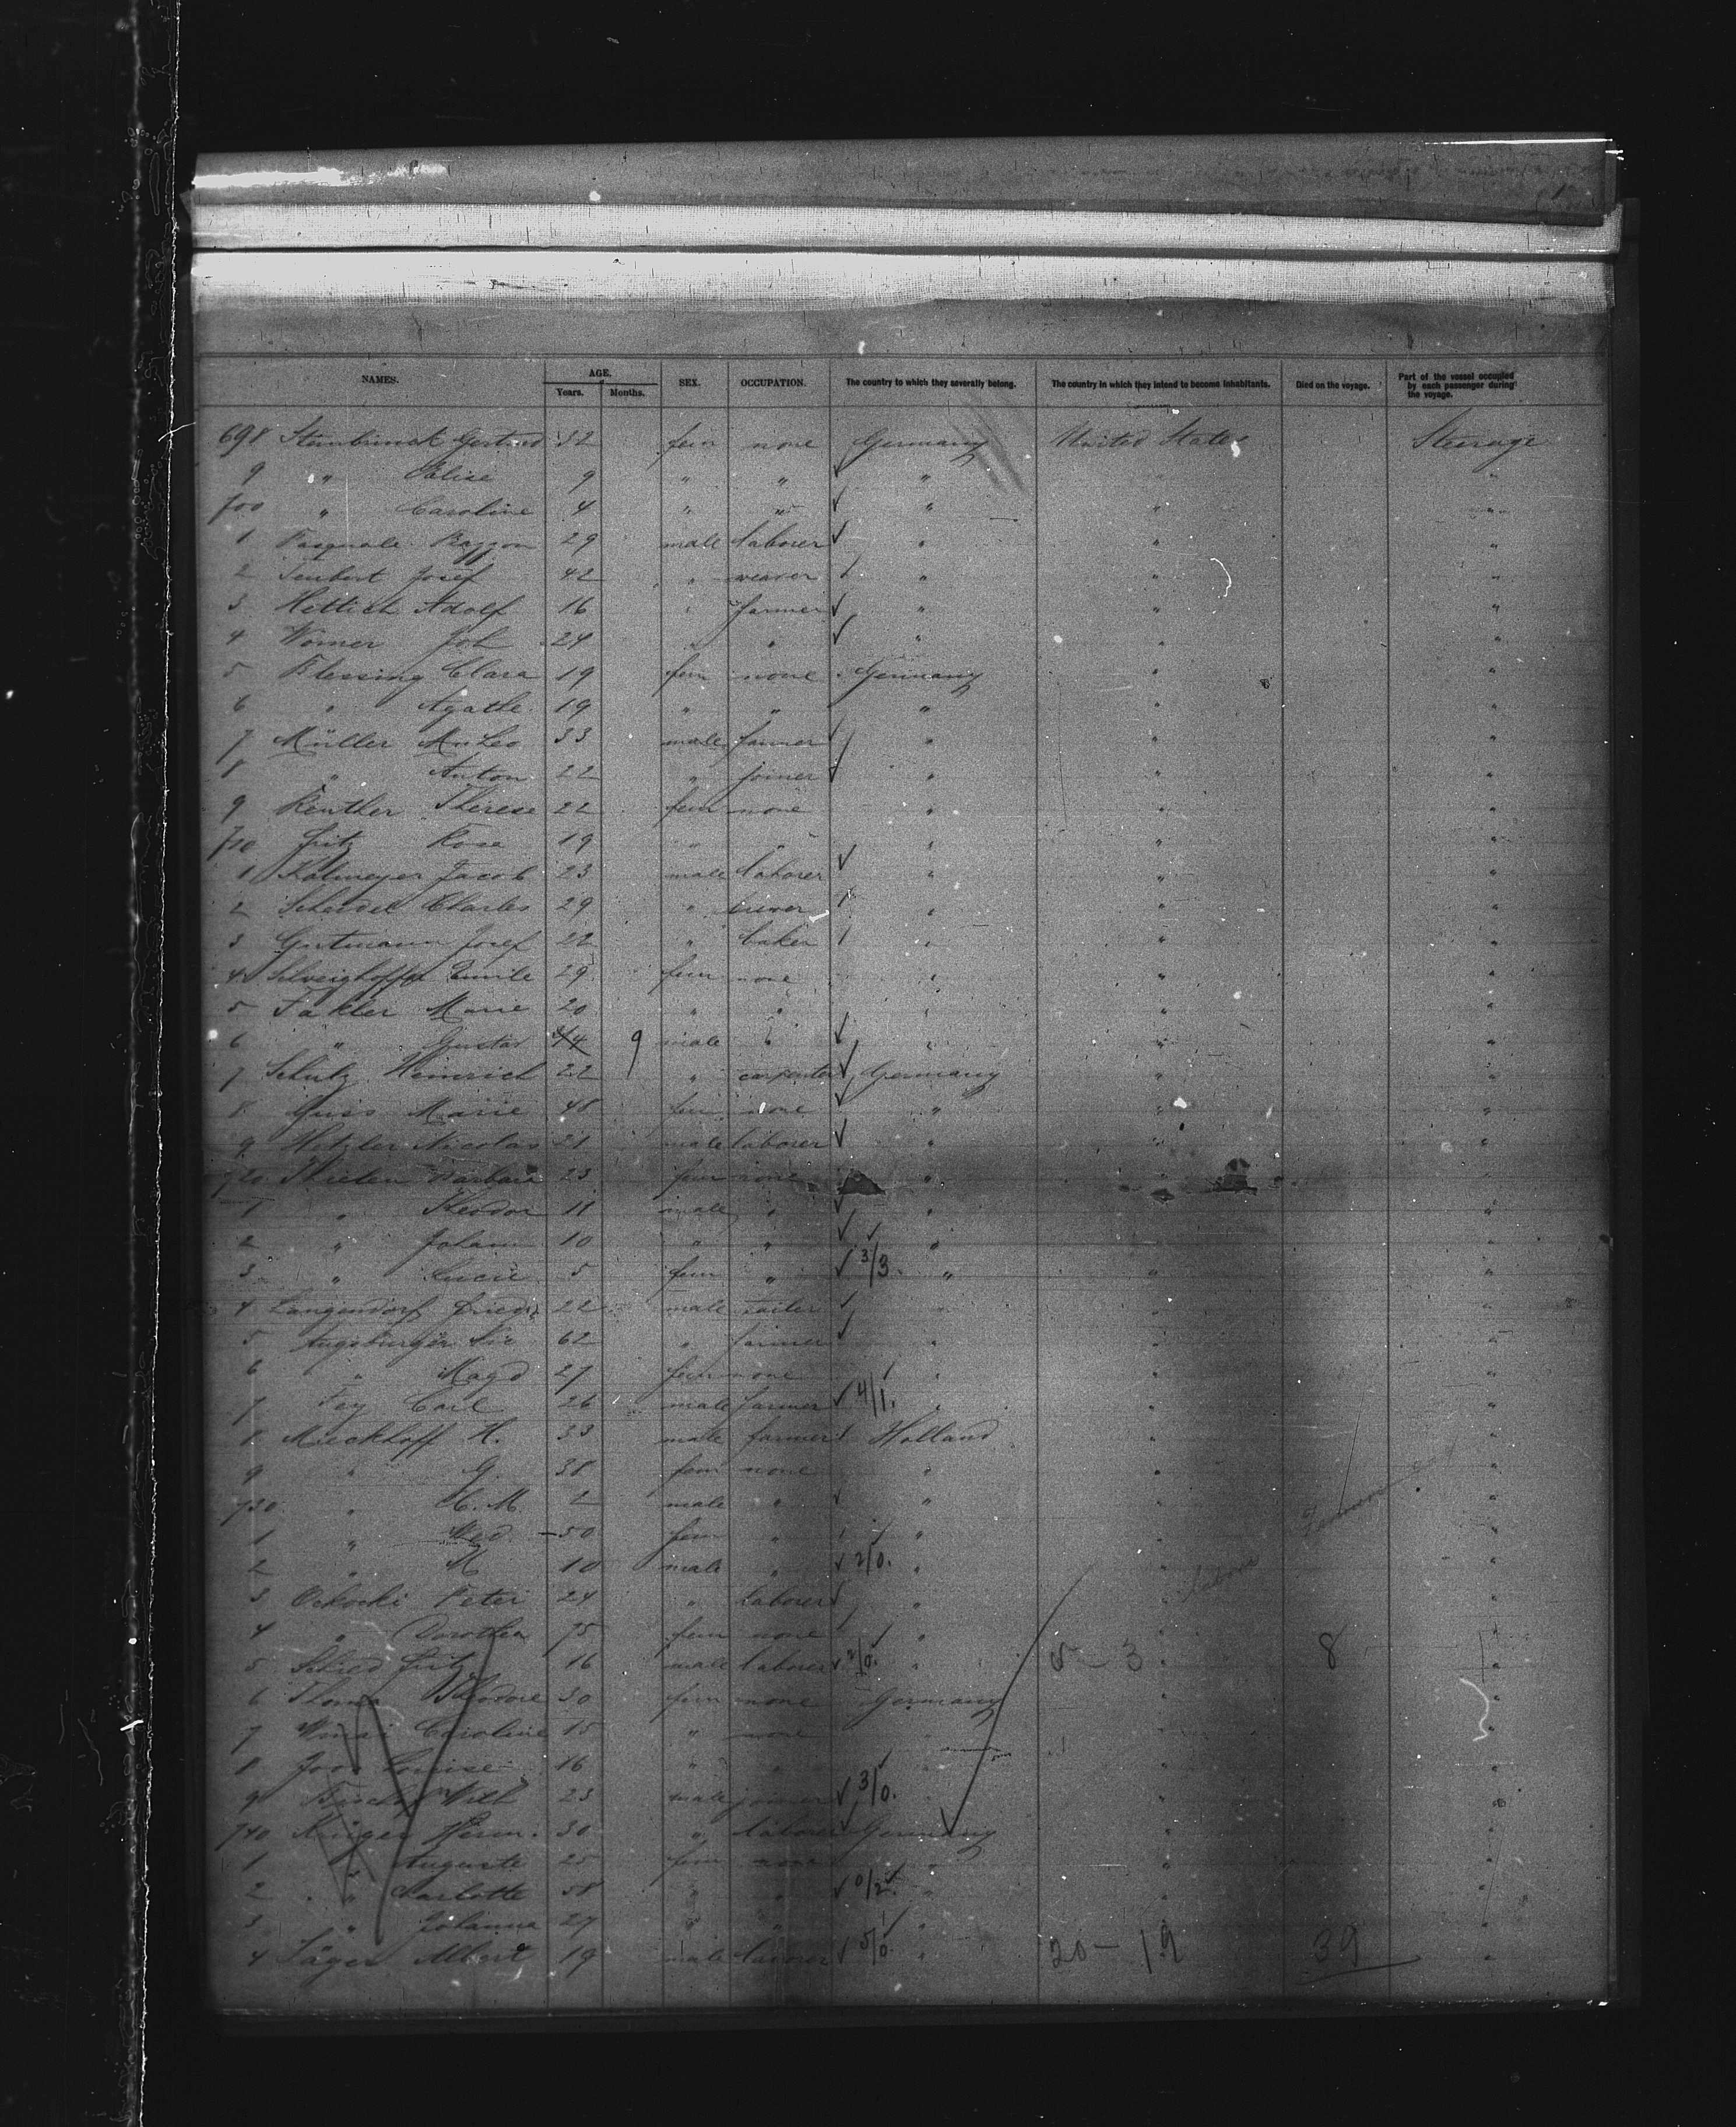 NAMES. AGE. SEX. OCCUPATION. The country to which they severally belong. The country in which they intend to become inhabitants. Died on the voyage. Part of the vessel occupied by each passenger during the voyage.
Years. Months.
698 Steinbrinck Gertrud 32 fem none Germany United States Steerage
9 " Elise 9 " " "
700 " Caroline 4 " " " " "
1 Pasquale 29 male laborer " " "
2 Seubert Josef 42 " weaver " " "
3 Hettich Adolf 16 " farmer " " "
4 Worner Joh 24 " " " " "
5 Blessing Clara 19 fem none Germany " "
6 " Agathe 19 " " " " "
7 Müller 33 male farmer " " "
8 " Anton 22 " joiner " " "
9 Renther Therese 22 fem none " " "
710 Fritz Rose 19 " " " " "
1 Kolmeyer Jacob 23 male laborer " " "
2 Scheidel Charles 29 " " " "
3 Gutmann Josef 22 " baker " " "
4 Emile 29 fem none " " "
5 Fakler Marie 20 " " " " "
6 " Gustav 9 male " " " "
7 Schulz Heinrich 22 " carpenter Germany " "
8 Guss Marie 48 fem none " " "
9 Hetzler Nicolas 21 male laborer " " "
720 Thielen Barbara 23 fem none " " "
1 " Theodor 11 male " " "
2 " Johann 10 " " " "
3 " Lucie 5 fem " 3/3. " " "
4 Langendorf Friedr 22 male tailer " "
5 Augsburger 62 " farmer " " "
6 " Magd 27 fem none " " "
7 Fey Carl 26 male farmer 4/1. " " "
8 Mieckhoff H. 33 male farmer Holland " "
9 " G. 38 fem none " " "
730 " H. M. 2 male " " " "
1 " 50 fem " " "
2 " H 10 male " 2/0. " "
3 Ockocki Peter 24 " laborer " " "
4 " Dorothea 75 fem none " " "
5 Fritz 16 male laborer 2/0. " 5 - 3 8 "
6 Thoma Theodore 30 fem none Germany "
7 Caroline 15 " none " "
8 Joos Louise 16 " " " " "
9 Wilh 23 male joiner 3/0. " "
740 Krüger Herm. 30 " laborer Germany " "
1 " Auguste 25 fem none " " "
2 " Charlotte 58 " " 0/2. " " "
3 " Johanna 27 " " " "
4 Jäger Albert 19 male laborer 5/0. " 20 - 19 39 "